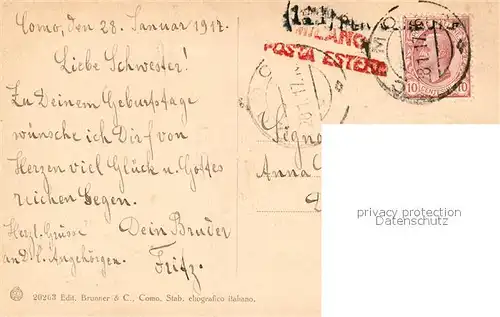 Como, den 28. Januar 1917.
Liebe Schwester!
Zu Deinem Geburtstage
wünsche ich Dir von
Herzen viel Glück u. Gottes
reichen Segen.
Herzl. Grüsse Dein Bruder
an D. l. Angehörigen. Fritz.
20263 Edit. Brunner & C., Como. Stab. eliografico italiano.
(141) PER
MILANO
POSTA ESTERA
COMO
28.1.17
10 10
Signo
Anna
privacy protection
Datenschutz